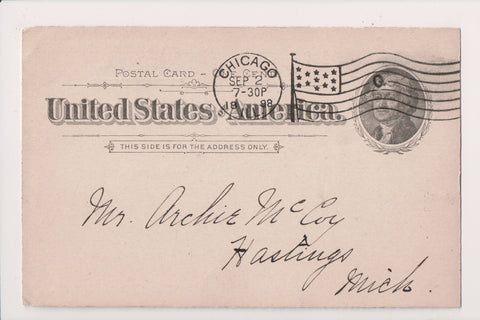 POSTAL CARD - ONE CENT
United States of America.
THIS SIDE IS FOR THE ADDRESS ONLY.
CHICAGO
SEP 2
7-30P
1898
Mr. Archie McCoy
Hastings
Mich.